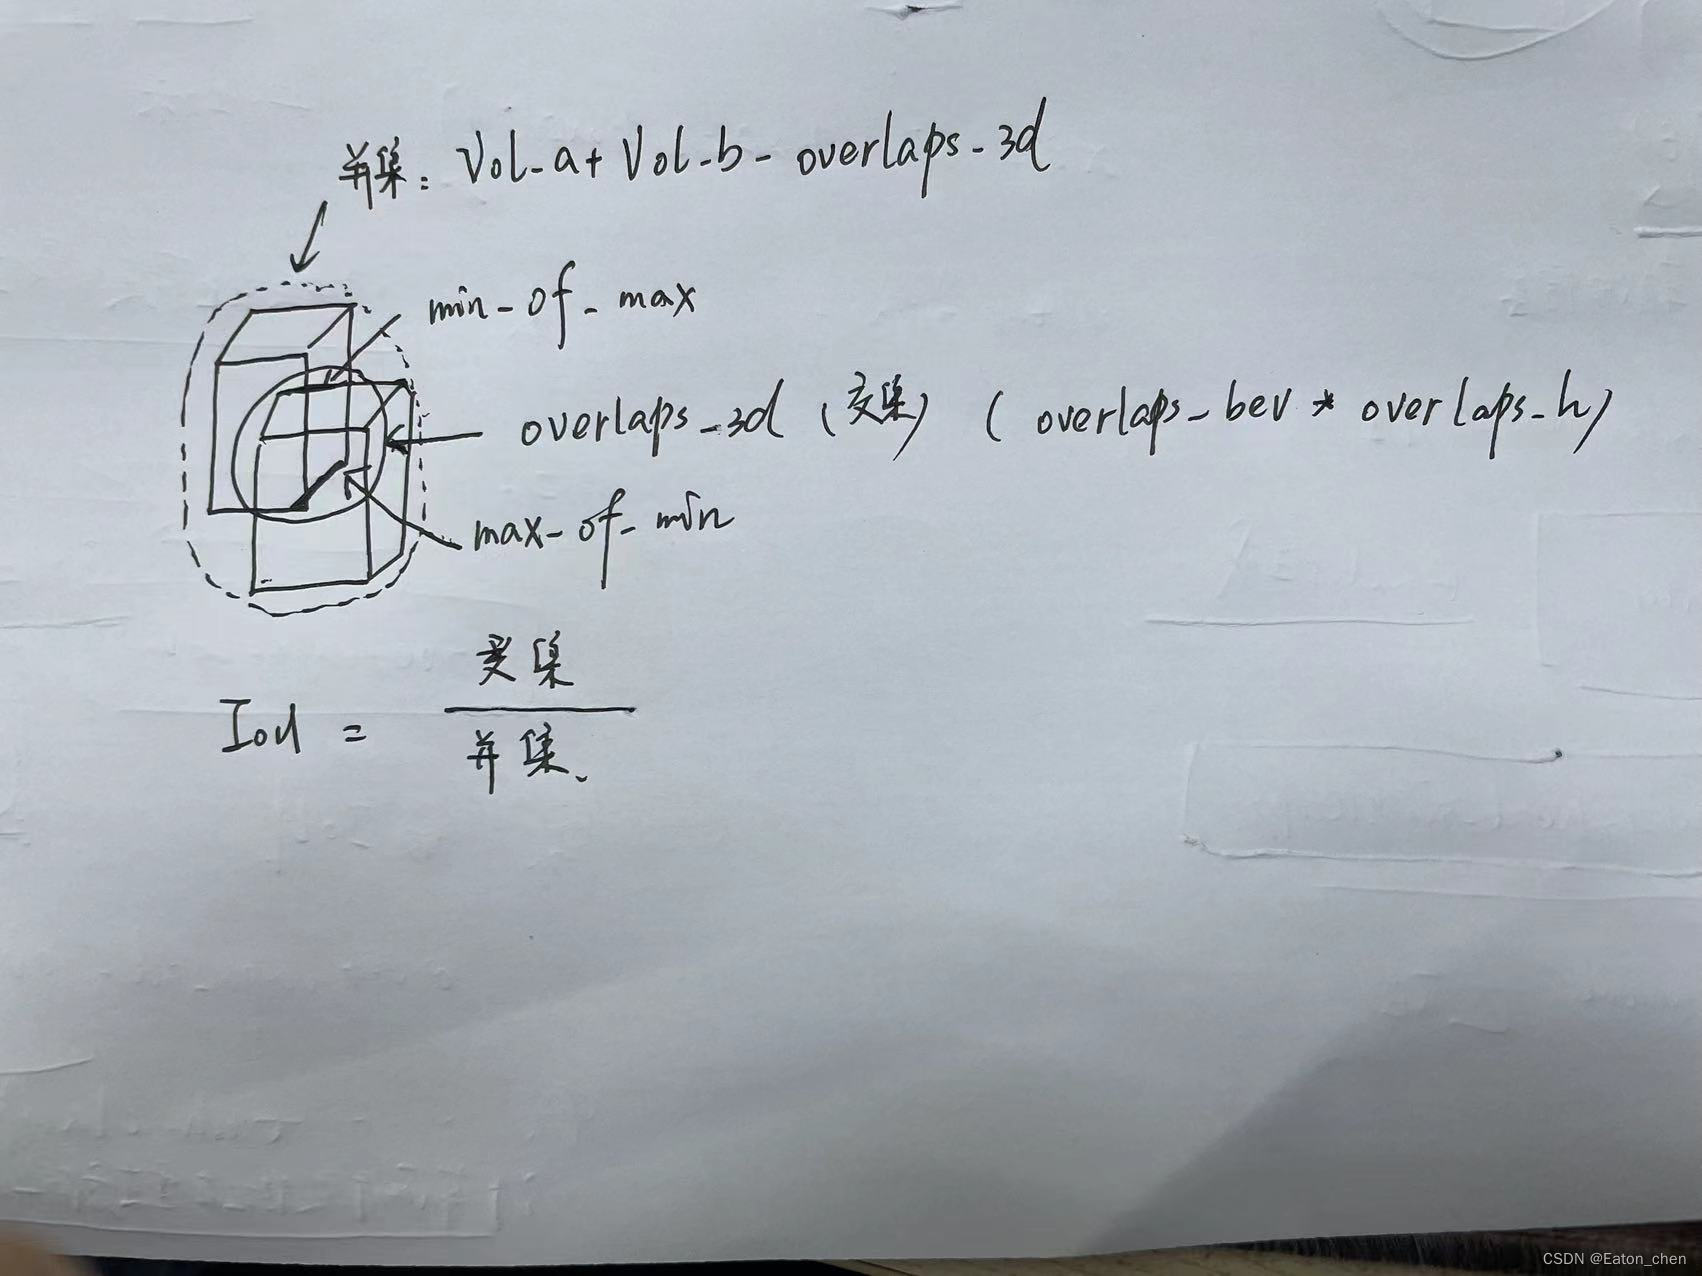 并集: Vol-a+Vol-b-overlaps-3d
min-of-max
overlaps-3d (交集) (overlaps-bev * overlaps-h)
max-of-min
交集
IoU =
并集、
CSDN @Eaton_chen